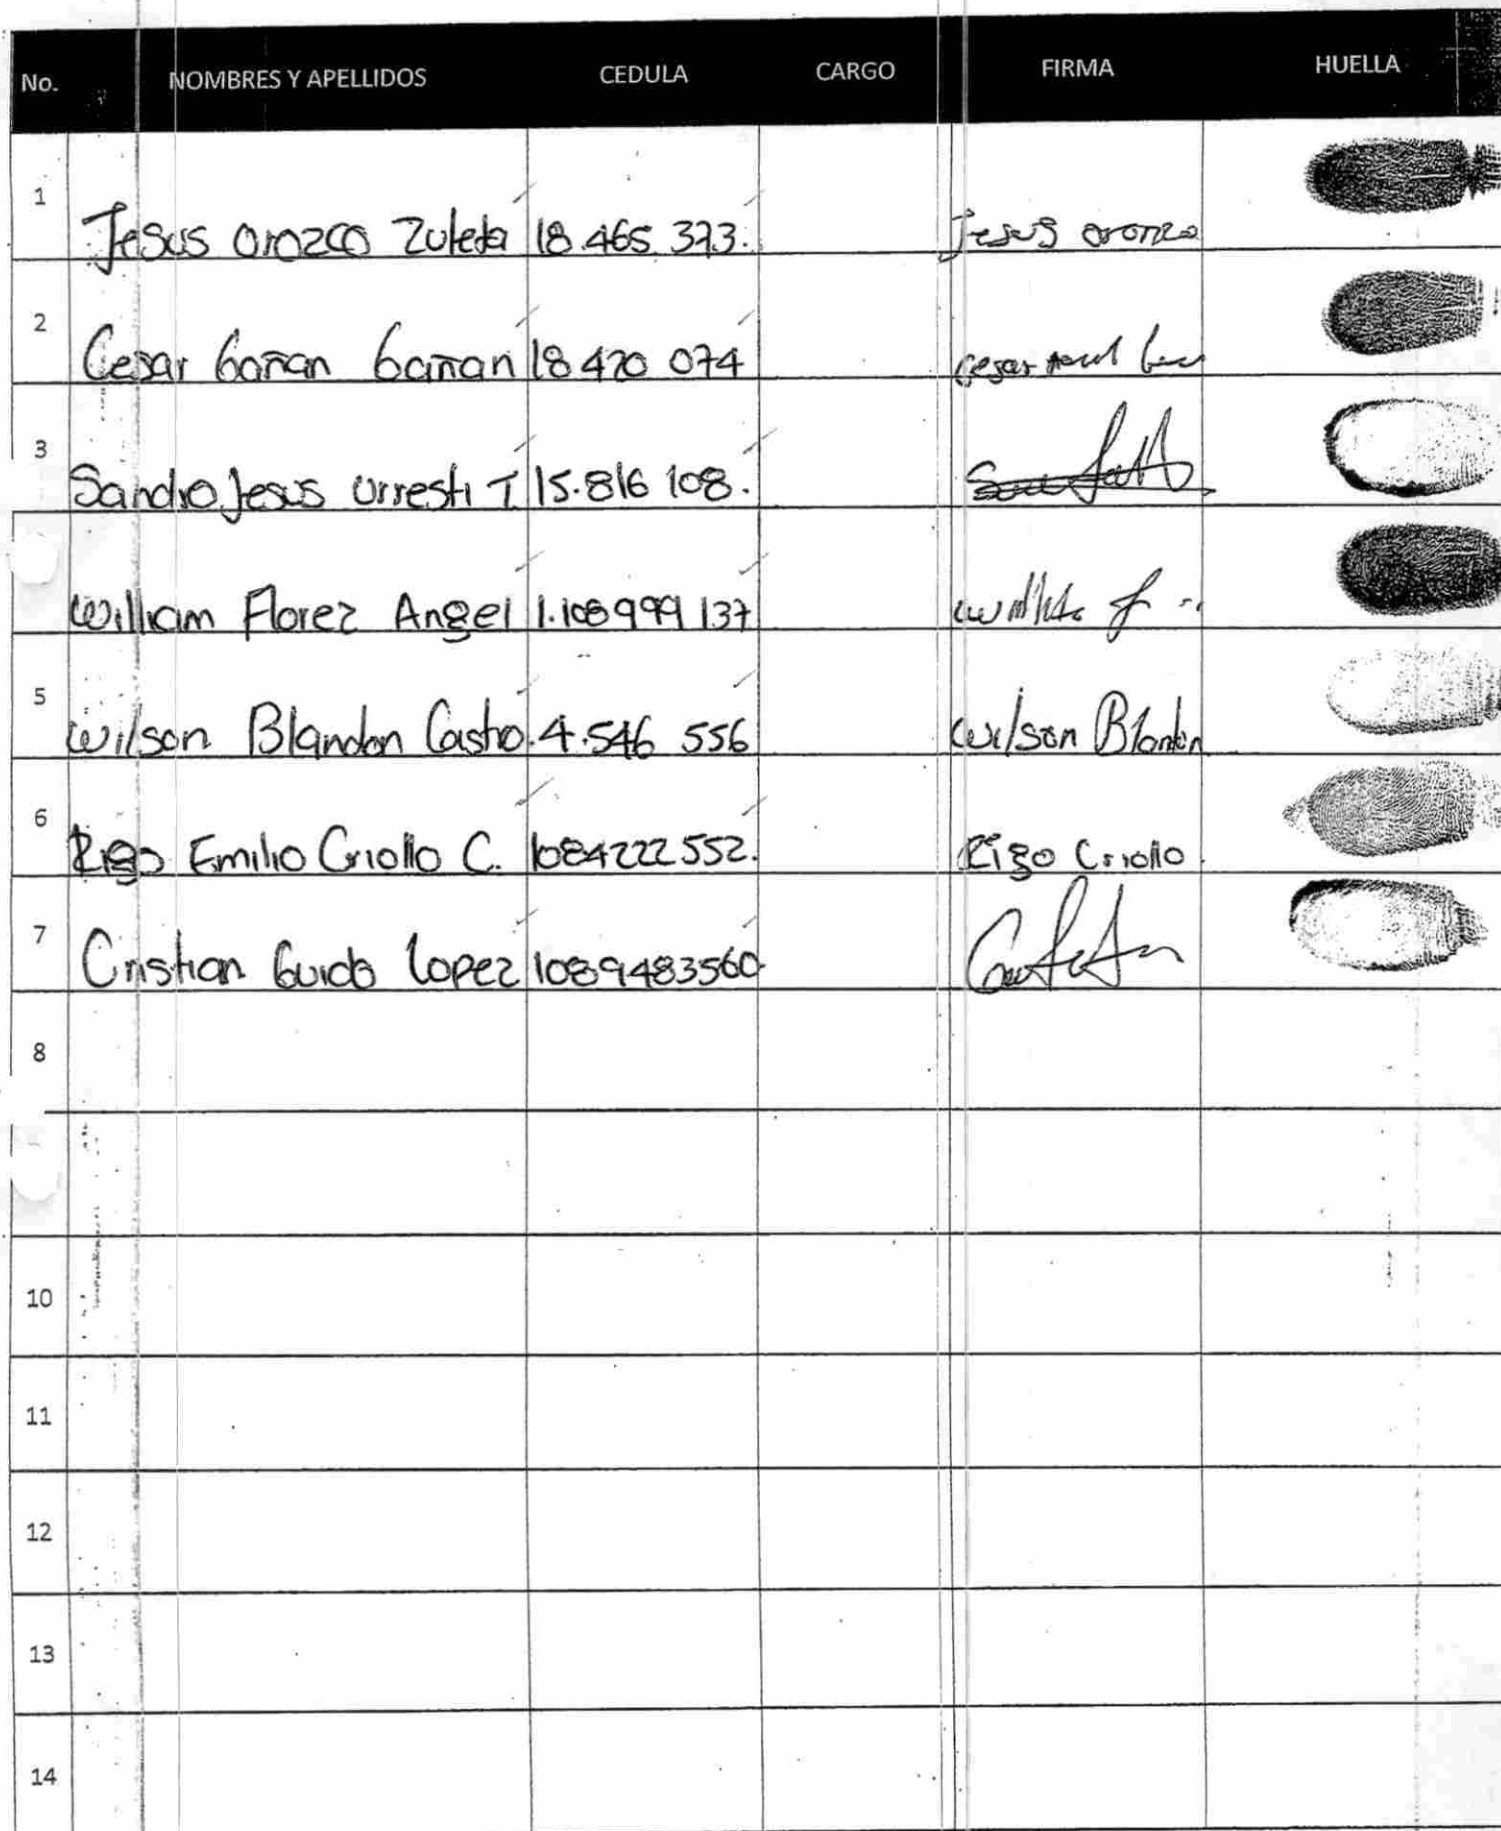 No. NOMBRES Y APELLIDOS CEDULA CARGO FIRMA HUELLA
1 Jesus Orozco Zuleta 18.465.373. Jesus orozco
2 Cesar Gañan Gañan 18 420 074 cesar
3 Sandro Jesus Urresti T. 15.816 108.
William Florez Angel 1.108999 137
5 Wilson Blandon Castro. 4.546 556 Wilson Blandon
6 Rigo Emilio Criollo C. 1084222552. Rigo Criollo.
7 Cristian Guido Lopez 1089483560.
8
10
11
12
13
14